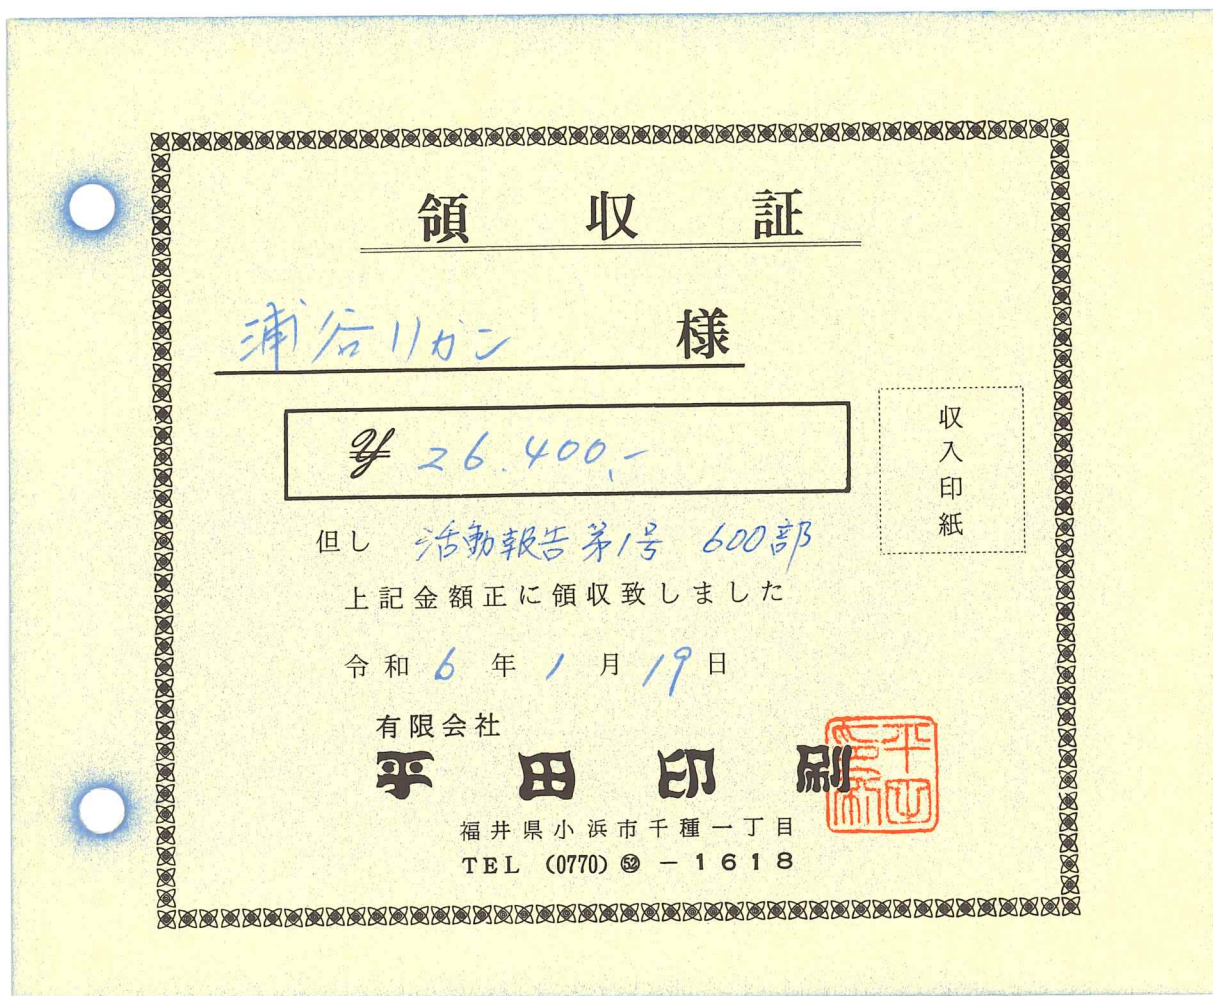 領収証
浦谷リガン 様
¥ 26.400,-
収入印紙
但し 活動報告第1号 600部
上記金額正に領収致しました
令和 6 年 1 月 19 日
有限会社
平田印刷
福井県小浜市千種一丁目
TEL (0770) 52 - 1618